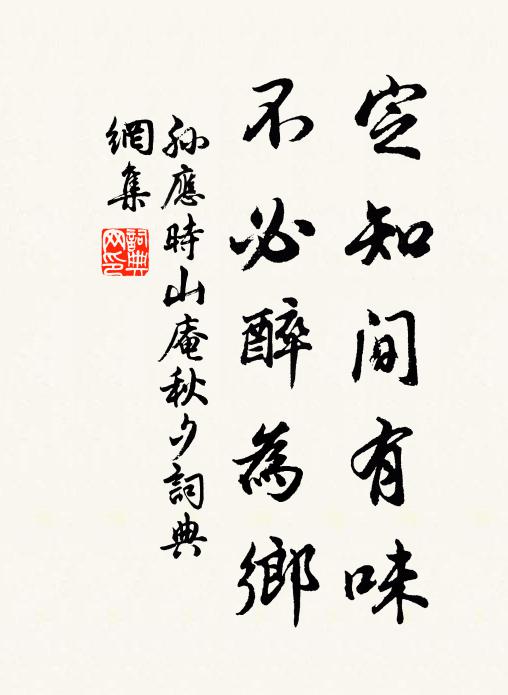 定知间有味
不必醉為鄉
孙應時山庵秋夕詞典
網集
詞典
网印